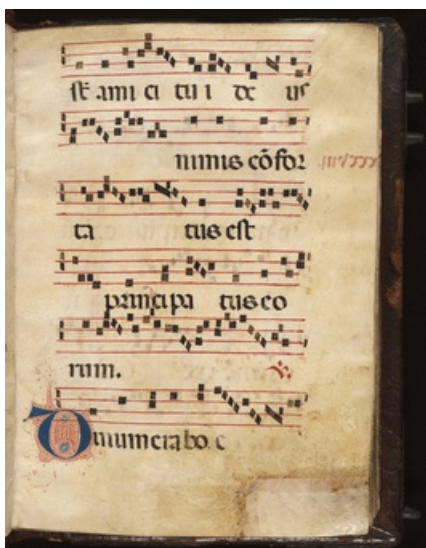 st amici tui de us
nimis cōfor
ta tus est
principa tus eo
rum. ℣.
Dinumerabo e